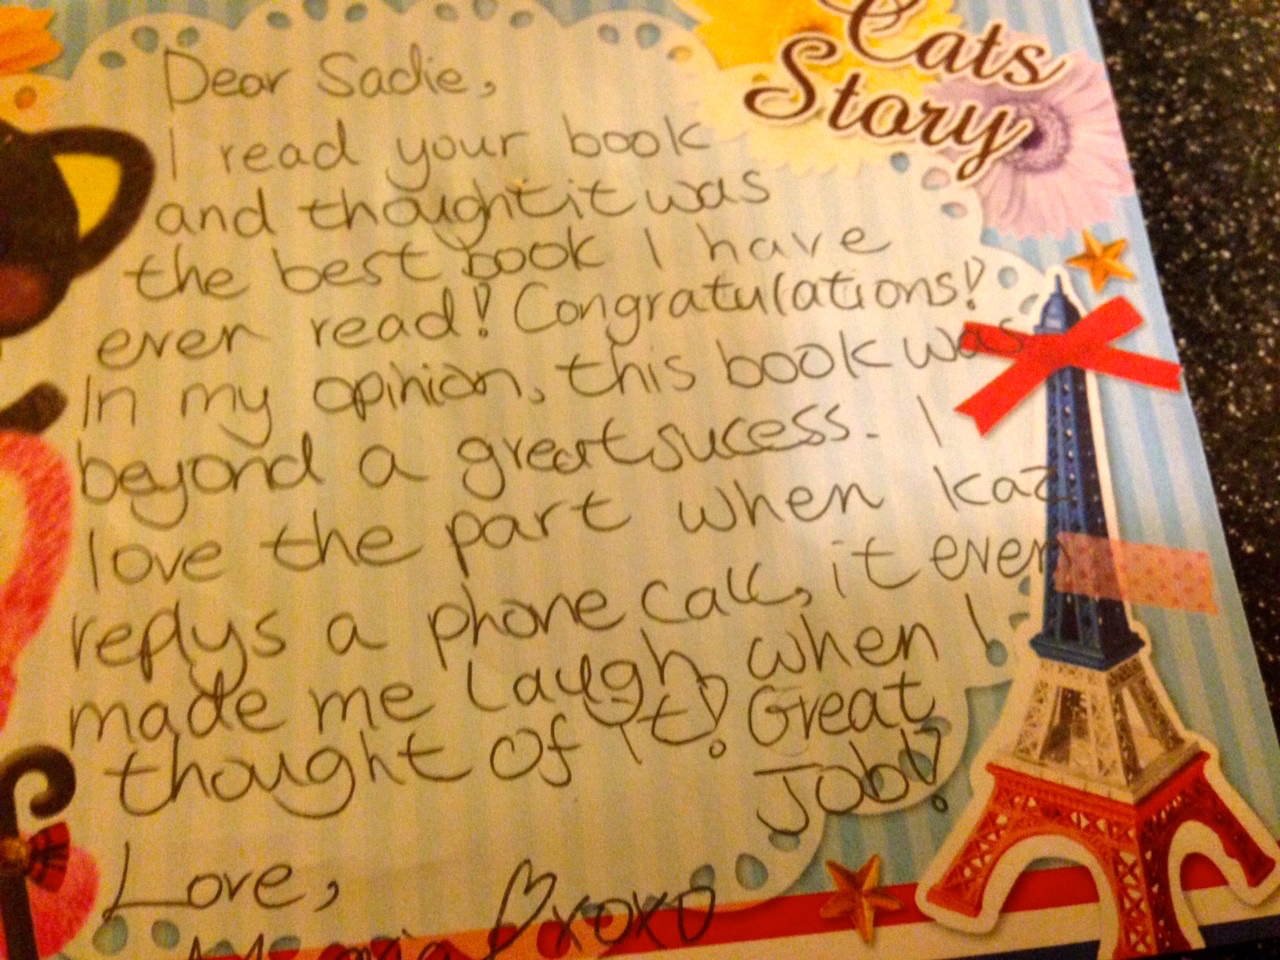 Cats
Story
Dear Sadie,
I read your book
and thought it was
the best book I have
ever read! Congratulations!
In my opinion, this book was
beyond a great sucess. I
love the part when Kaz
replys a phone call, it even
made me laugh when I
thought of it! Great
Job!
Love,
xoxo